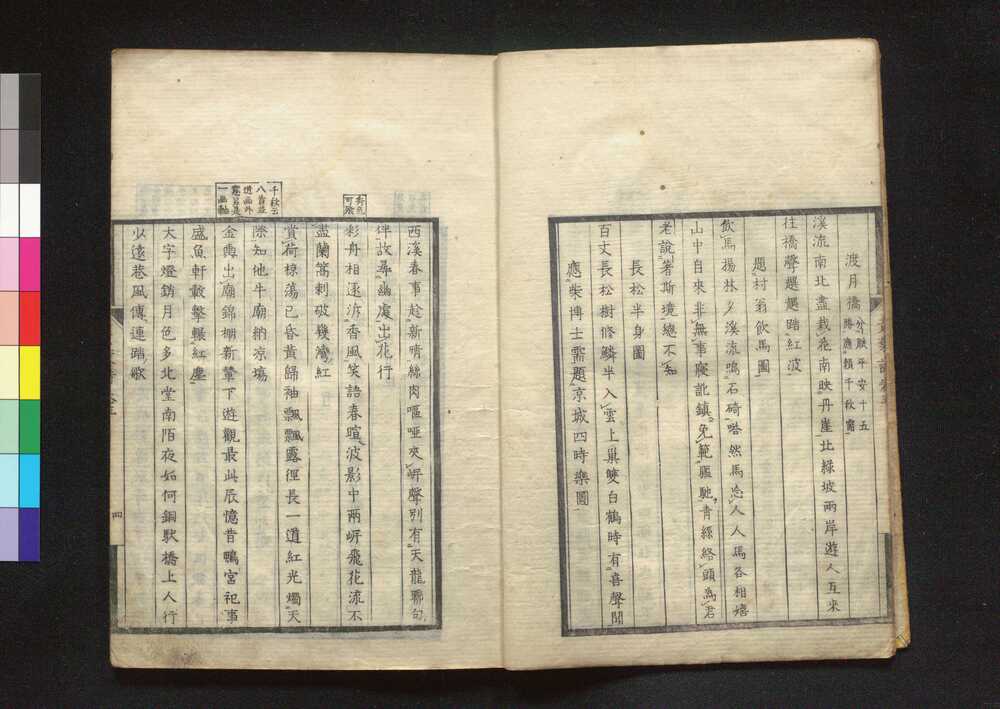 渡月橋 分賦平安十五勝應頼千秋需
溪流南北盡栽花南映丹崖北緑坡兩岸遊人互來
往橋聲趨趨踏紅波
題村翁飲馬圖
飲馬楊林夕溪流鳴石碕嗒然馬忘人人馬各相嬉
山中自來非無事寢訛鎮免範驅馳青絲絡頭為君
老說著斯境總不知
長松半身圖
百丈長松樹修鱗半入雲上巢雙白鶴時有喜聲聞
應柴博士需題京城四時樂圖
西溪春事趁新晴絲肉嘔啞夾岸聲別有天龍聯句
伴故尋幽處出花行
彩舟相逐泝香風笑語春暄波影中兩岸飛花流不
盡蘭篙刺破幾灣紅
賞荷椋蕩已昏黃歸袖飄飄露徑長一道紅光燭天
際知他牛廟納凉場
金輿出廟錦棚新輦下遊觀最此辰憶昔鴨宮祀事
盛魚軒轂擊輾紅塵
大字燈銷月色多北堂南陌夜如何銅駄橋上人行
少遠巷風傳連踏歌
千秋云
八首並
一畫軸
四